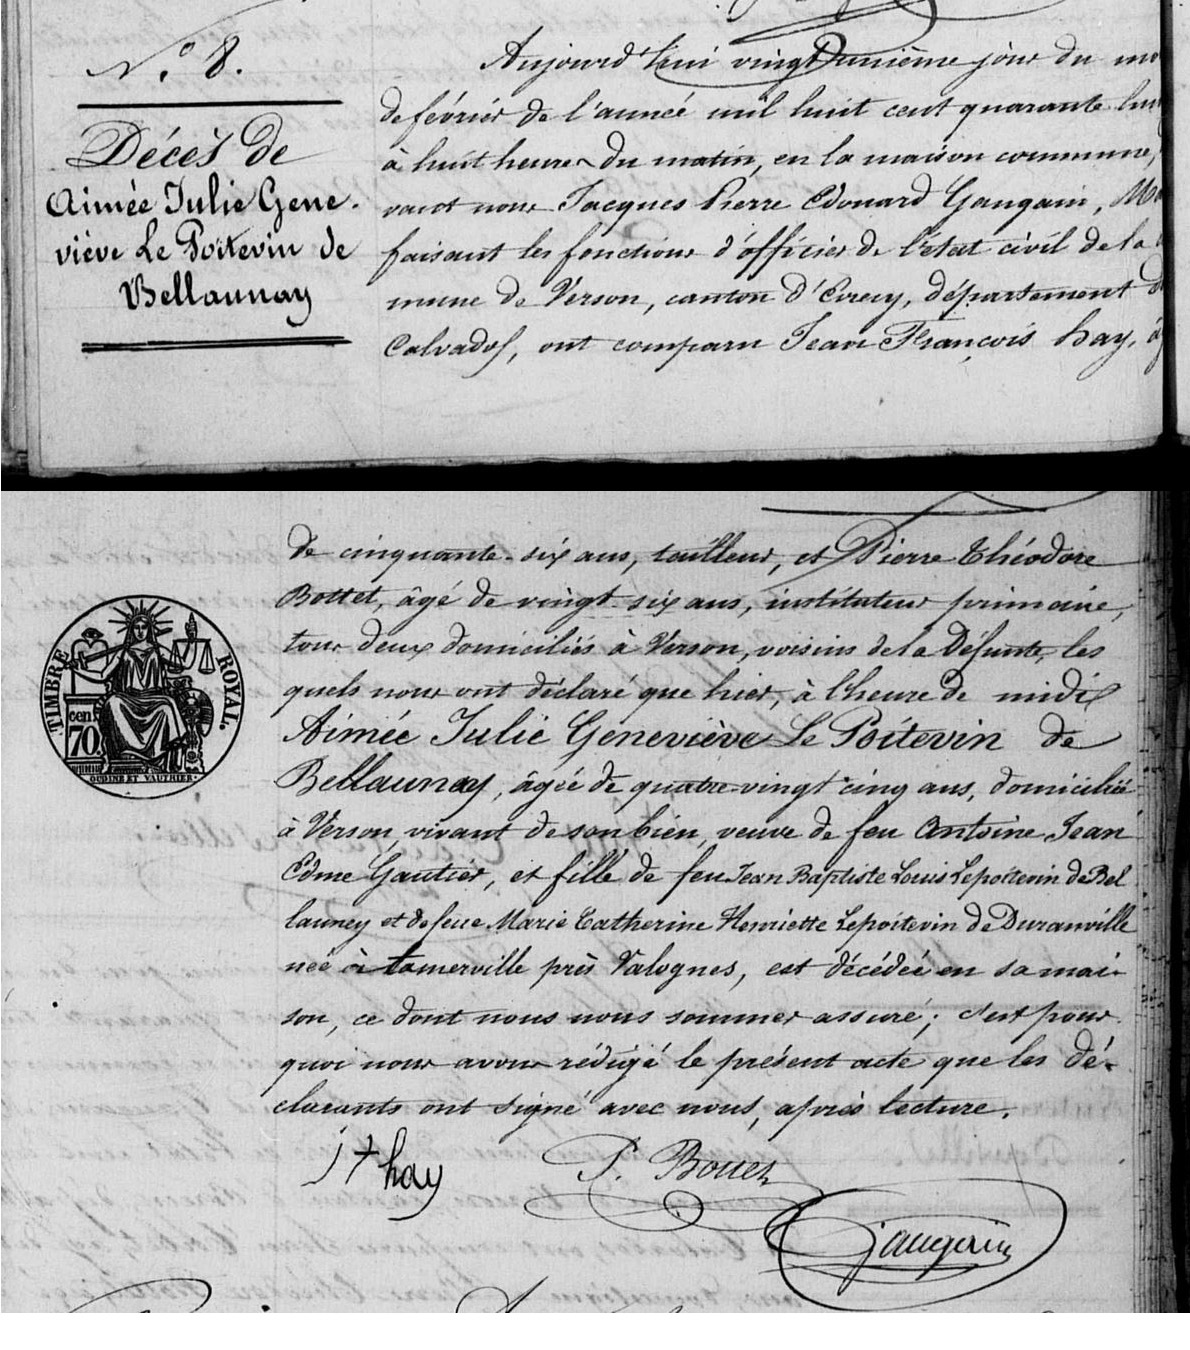 N.° 8.
Décès de
Aimée Julie Gene-
viève Le Poitevin de
Bellaunay
Aujourd'hui vingt unième jour du mo
de février de l'année mil huit cent quarante hui
à huit heures du matin, en la maison commune,
vant nous Jacques Pierre Edouard Gaugain, Ma
faisant les fonctions d'officier de l'état civil de la
mune de Verson, canton d'Evrecy, département d
Calvados, ont comparu Jean François hay, âg
de cinquante-six ans, tailleur, et Pierre Théodore
Bottet, âgé de vingt-six ans, instituteur primaire,
tous deux domiciliés à Verson, voisins de la Défunte, les
quels nous ont déclaré que hier, à l'heure de midi
Aimée Julie Geneviève Le Poitevin de
Bellaunay, âgée de quatre-vingt cinq ans, domiciliée
à Verson, vivant de son bien, veuve de feu Antoine Jean
Edme Gautier, et fille de feu Jean Baptiste Louis Lepoitevin de Bel
launey et de feue Marie Catherine Henriette Lepoitevin de Duranville
née à tamerville près Valognes, est décédée en sa mai-
son, ce dont nous nous sommes assuré; c'est pour
quoi nous avons rédigé le présent acte que les dé-
clarants ont signé avec nous, après lecture.
TIMBRE ROYAL.
cen.
70
OUDINE ET VAUTHIER.
J f hay
P. Bottet
Gaugain